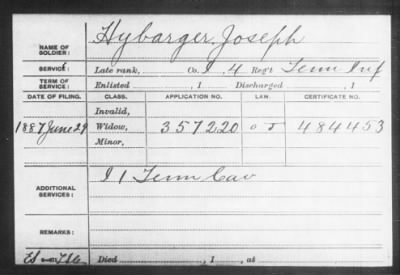 NAME OF SOLDIER: Hybarger, Joseph
SERVICE: Late rank, Co. I, 4 Reg't Tenn Inf
TERM OF SERVICE: Enlisted , 1 Discharged , 1
DATE OF FILING. CLASS. APPLICATION NO. LAW. CERTIFICATE NO.
Invalid,
1887 June 29 Widow, 357220 484453
Minor,
ADDITIONAL SERVICES: I 1 Tenn Cav
REMARKS:
Died , 1 , at